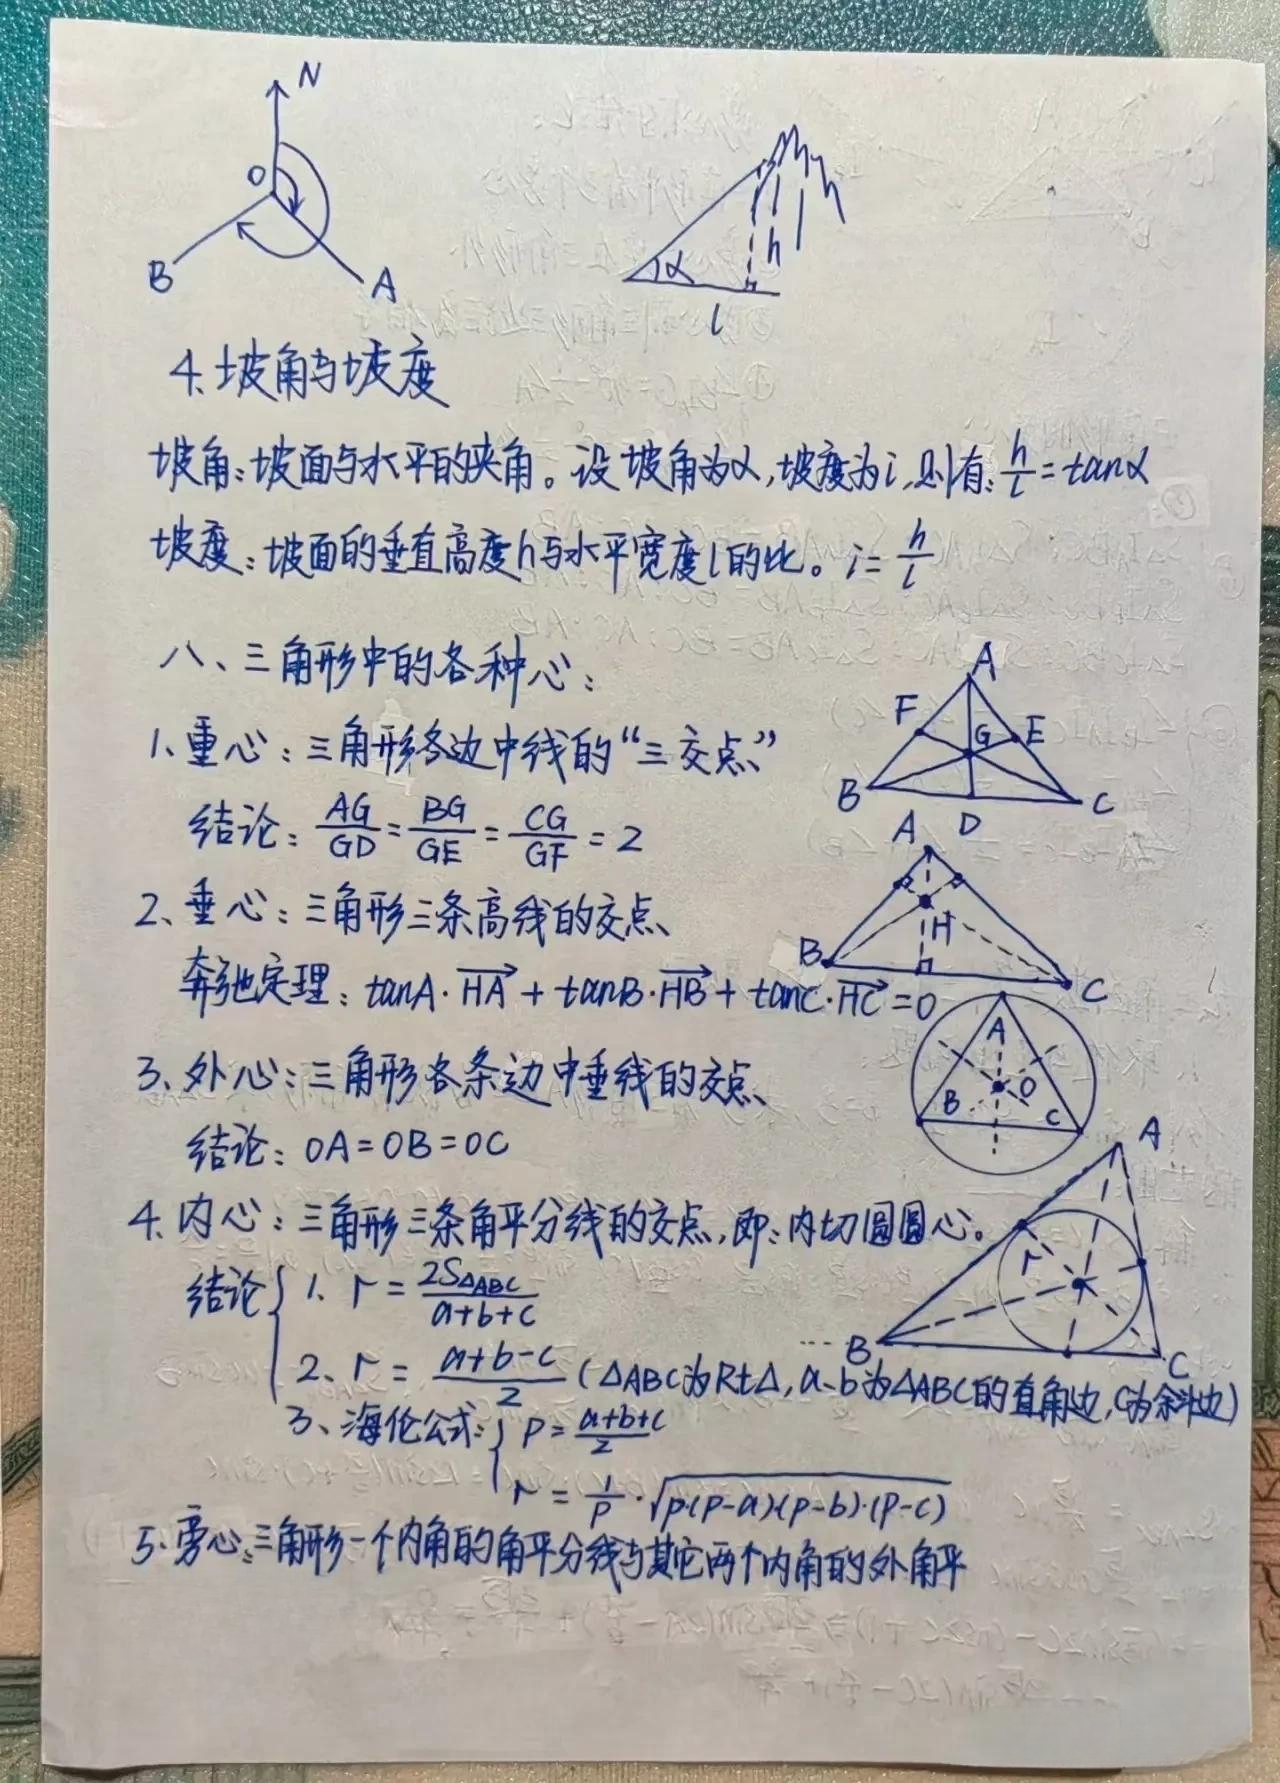 N
O
B
A
α
h
l
4、坡角与坡度
坡角：坡面与水平的夹角。设坡角为α,坡度为i,则有：h/l=tanα
坡度：坡面的垂直高度h与水平宽度l的比。i=h/l
八、三角形中的各种心：
1、重心：三角形各边中线的“三交点”
结论：AG/GD=BG/GE=CG/GF=2
A
F
G
E
B
D
C
2、垂心：三角形三条高线的交点、
奔驰定理：tanA·HA→+tanB·HB→+tanC·HC→=0
A
H
B
C
3、外心：三角形各条边中垂线的交点、
结论：OA=OB=OC
A
B
O
C
4、内心：三角形三条角平分线的交点,即：内切圆圆心。
结论{1、r=2S△ABC/(a+b+c)
2、r=(a+b-c)/2(△ABC为Rt△,a、b为△ABC的直角边,c为斜边)
3、海伦公式：{p=(a+b+c)/2
r=1/p·√p·(p-a)·(p-b)·(p-c)
A
r
B
C
5、旁心：三角形一个内角的角平分线与其它两个内角的外角平